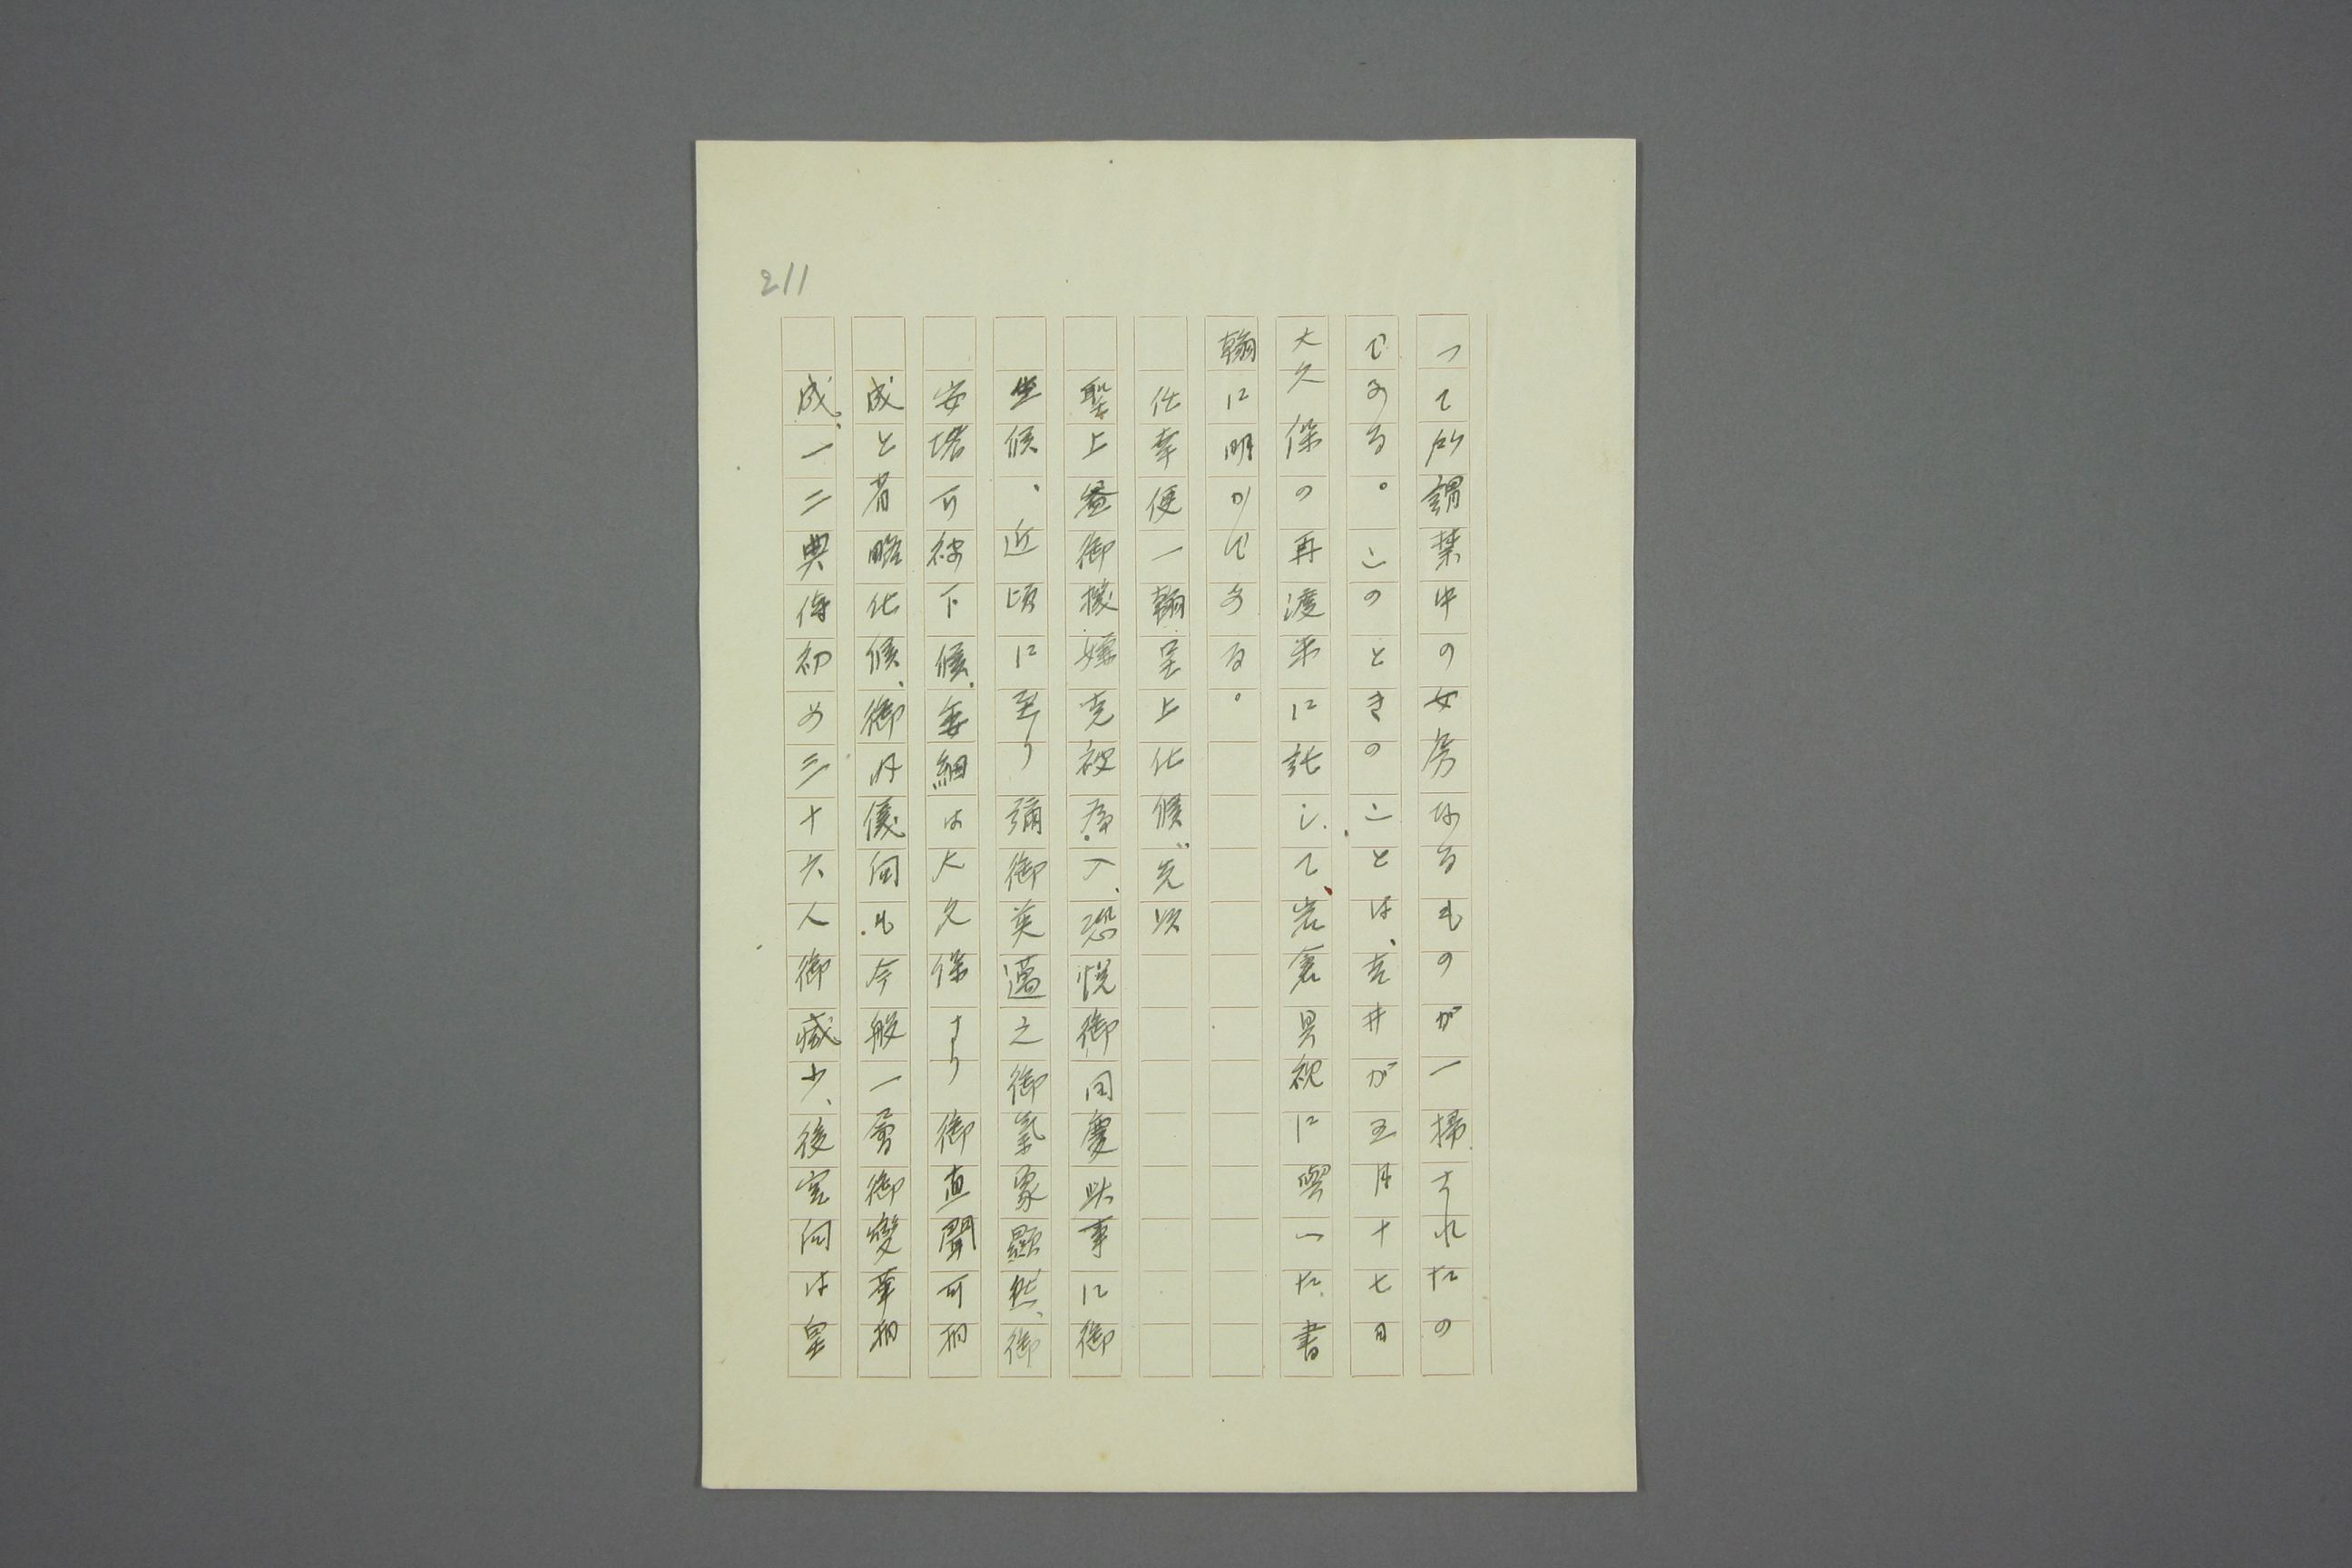 211
つて所謂禁中の女房なるものが一掃されたの
である。このときのことは、吉井が五月十七日
大久保の再渡米に託して、岩倉具視に與一た書
翰に明かである。
仕幸便一翰呈上仕候、先以
聖上益御機嫌克被為入、恐悦御同慶此事に御
坐候、近頃に至り彌御英邁之御氣象顯然、御
安堵可被下候、委細は大久保より御直聞可相
成と省略仕候、御内儀向も今般一層御變革相
成、一二典侍初め三十六人御減少、後宮向は皇